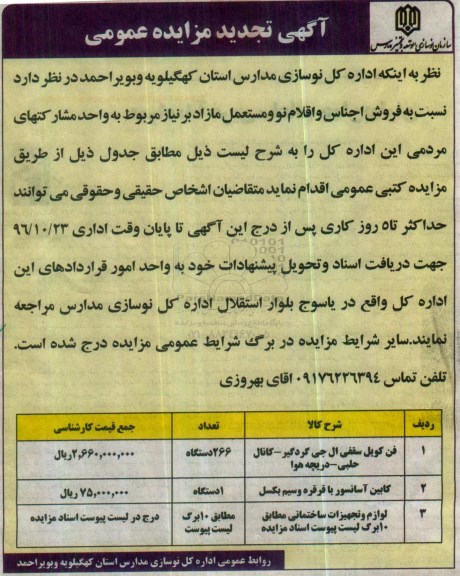 سازمان نوسازی، توسعه و تجهیز مدارس
آگهی تجدید مزایده عمومی
نظر به اینکه اداره کل نوسازی مدارس استان کهگیلویه وبویراحمد در نظر دارد
نسبت به فروش اجناس واقلام نو ومستعمل مازاد بر نیاز مربوط به واحد مشارکتهای
مردمی این اداره کل را به شرح لیست ذیل مطابق جدول ذیل از طریق
مزایده کتبی عمومی اقدام نماید متقاضیان اشخاص حقیقی وحقوقی می توانند
حداکثر تا۵ روز کاری پس از درج این آگهی تا پایان وقت اداری ۹۶/۱۰/۲۳
جهت دریافت اسناد وتحویل پیشنهادات خود به واحد امور قراردادهای این
اداره کل واقع در یاسوج بلوار استقلال اداره کل نوسازی مدارس مراجعه
نمایند.سایر شرایط مزایده در برگ شرایط عمومی مزایده درج شده است.
تلفن تماس ۰۹۱۷۶۲۲۶۳۹۴ اقای بهروزی
ردیف شرح کالا تعداد جمع قیمت کارشناسی
۱ فن کویل سقفی ال جی گردگیر-کانال ۲۶۶دستگاه ۲,۶۶۰,۰۰۰,۰۰۰ریال
حلبی-دریچه هوا
۲ کابین آسانسور با قرقره وسیم بکسل ۱دستگاه ۷۵,۰۰۰,۰۰۰ ریال
۳ لوازم وتجهیزات ساختمانی مطابق مطابق ۱۰برگ درج در لیست پیوست اسناد مزایده
۱۰برگ لیست پیوست اسناد مزایده لیست پیوست
روابط عمومی اداره کل نوسازی مدارس استان کهگیلویه وبویراحمد